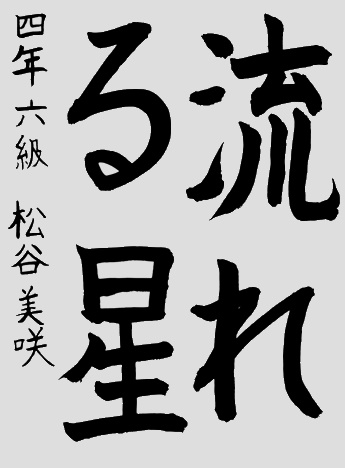 流れ
る星
四年 六級 松谷美咲